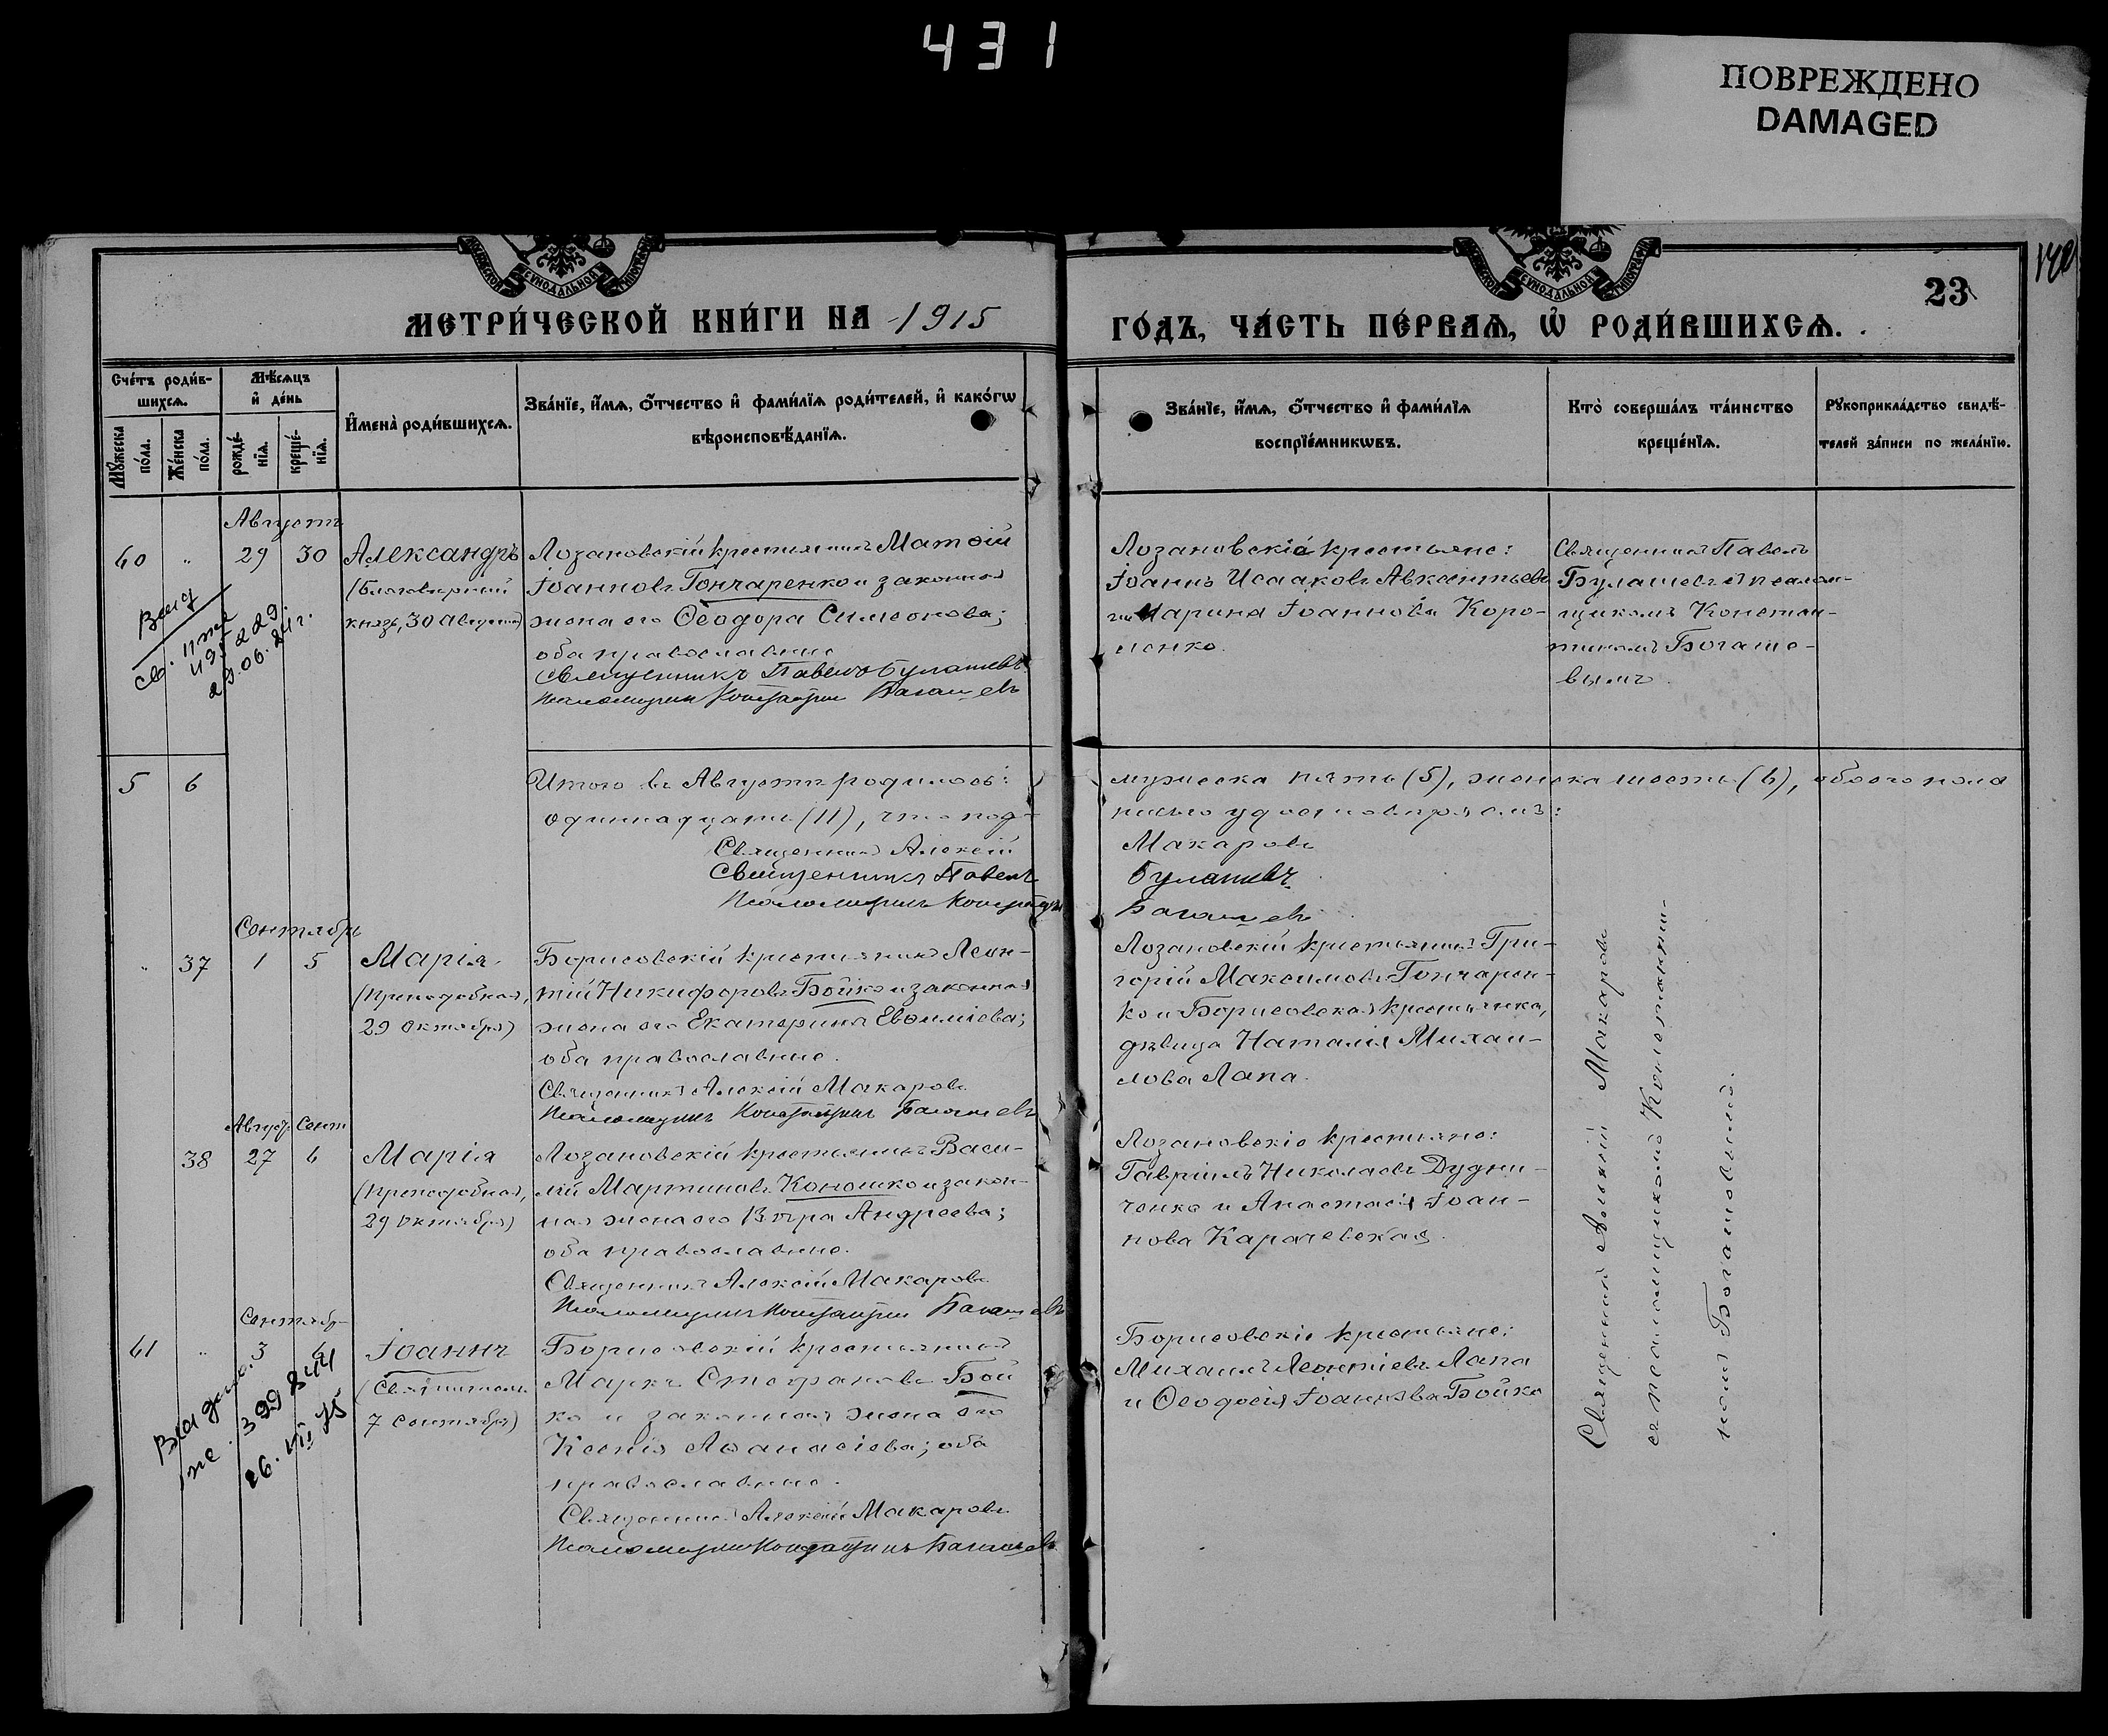 431
ПОВРЕЖДЕНО
DAMAGED
МЕТРИ́ЧЕСКОЙ КНИ́ГИ НА 1915
ГО́ДЪ, ЧА́СТЬ ПЕ́РВАѦ, Ѡ҆ РОДИ́ВШИХСѦ.
23
Сче́тъ роди́в-
шихсѧ.
Мѣ́сѧцъ
и҆ де́нь
Мꙋ́жеска
по́ла.
Же́нска
по́ла.
рожде́-
нїѧ.
креще́-
нїѧ.
И҆мена̀ роди́вшихсѧ.
Зва́нїе, и҆́мѧ, ѻ҆́тчество и҆ фами́лїѧ роди́телей, и҆ како́гѡ
вѣроисповѣ́данїѧ.
Зва́нїе, и҆́мѧ, ѻ҆́тчество и҆ фами́лїѧ
воспрїе́мникѡвъ.
Кто̀ соверша́лъ та́инство
креще́нїѧ.
Рꙋкоприкла́дство свидѣ́-
телей за́писи по жела́нїю.
Августъ
60 " 29 30 Александръ
(Благовѣрный
князь, 30 Августа)
Лозановскій крестьянинъ Матѳій
Іоанновъ Гончаренко и законная
жена его Ѳеодора Симеонова;
оба православные
Священникъ Павелъ Булашевъ
Псаломщикъ Константинъ Багашевъ
Лозановскіе крестьяне:
Іоаннъ Исааковъ Авксентьевъ
и Марина Іоаннова Коро-
ленко.
Священникъ Павелъ
Булашевъ съ псалом-
щикомъ Констан-
тиномъ Богаше-
вымъ.
29.06.84г.
5 6
Итого въ Августѣ родилось:
одиннадцать (11), что под-
Священникъ Алексій
Священникъ Павелъ
Псаломщикъ Константинъ
мужеска пять (5), женска шесть (6), обоего пола
писью удостовѣряемъ:
Макаровъ
Булашевъ
Багашевъ
Сентябрь
" 37 1 5 Марія
(преподобная,
29 Октября)
Борисовскій крестьянинъ Леон-
тій Никифоровъ Бойко и законная
жена его Екатерина Евѳиміева;
оба православные.
Священникъ Алексій Макаровъ
Псаломщикъ Константинъ Багашевъ
Лозановскій крестьянинъ Гри-
горій Максимовъ Гончарен-
ко и Борисовская крестьянка,
дѣвица Наталія Михаи-
лова Лапа.
Авгус. Сент.
38 27 6 Марія
(преподобная,
29 Октября)
Лозановскій крестьянинъ Васи-
лій Мартиновъ Коношко и закон-
ная жена его Вѣра Андреева;
оба православные.
Священникъ Алексій Макаровъ
Псаломщикъ Константинъ Багашевъ
Лозановскіе крестьяне:
Гавріилъ Николаевъ Дудни-
ченко и Анастасія Іоан-
нова Карачевская.
Сентябрь
61 " 3 6 Іоаннъ
(Святитель
7 Сентября)
Борисовскій крестьянинъ
Маркъ Стефановъ Бой
ко и законная жена его
Ксенія Аѳанасіева; оба
православные.
Священникъ Алексій Макаровъ
Псаломщикъ Константинъ Багашевъ
Борисовскіе крестьяне:
Михаилъ Леонтіевъ Лапа
и Ѳеодосія Іоаннова Бойко
26.VII 75
Священникъ Алексій Макаровъ
съ псаломщикомъ Константи-
номъ Богашевымъ.